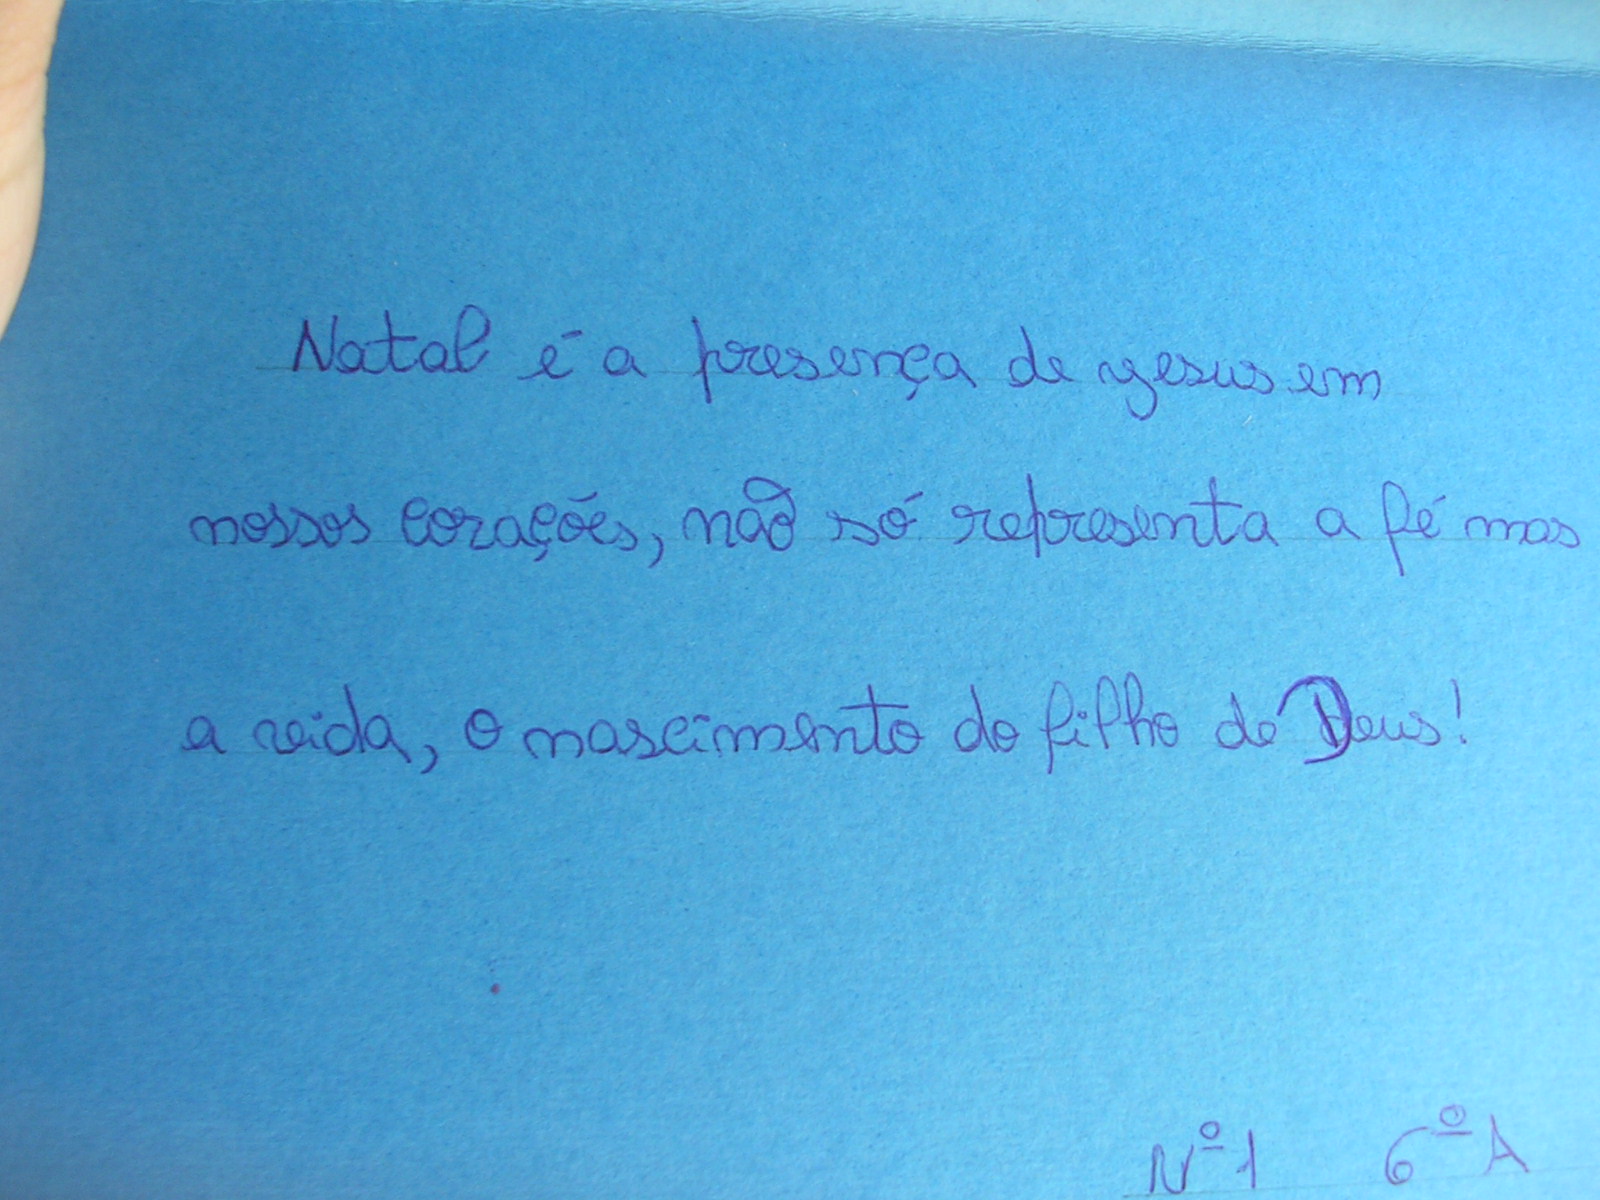 Natal é a presença de yesus em
nossos corações, não só representa a fé mas
a vida, o nascimento do filho de Deus!
Nº1 6ºA